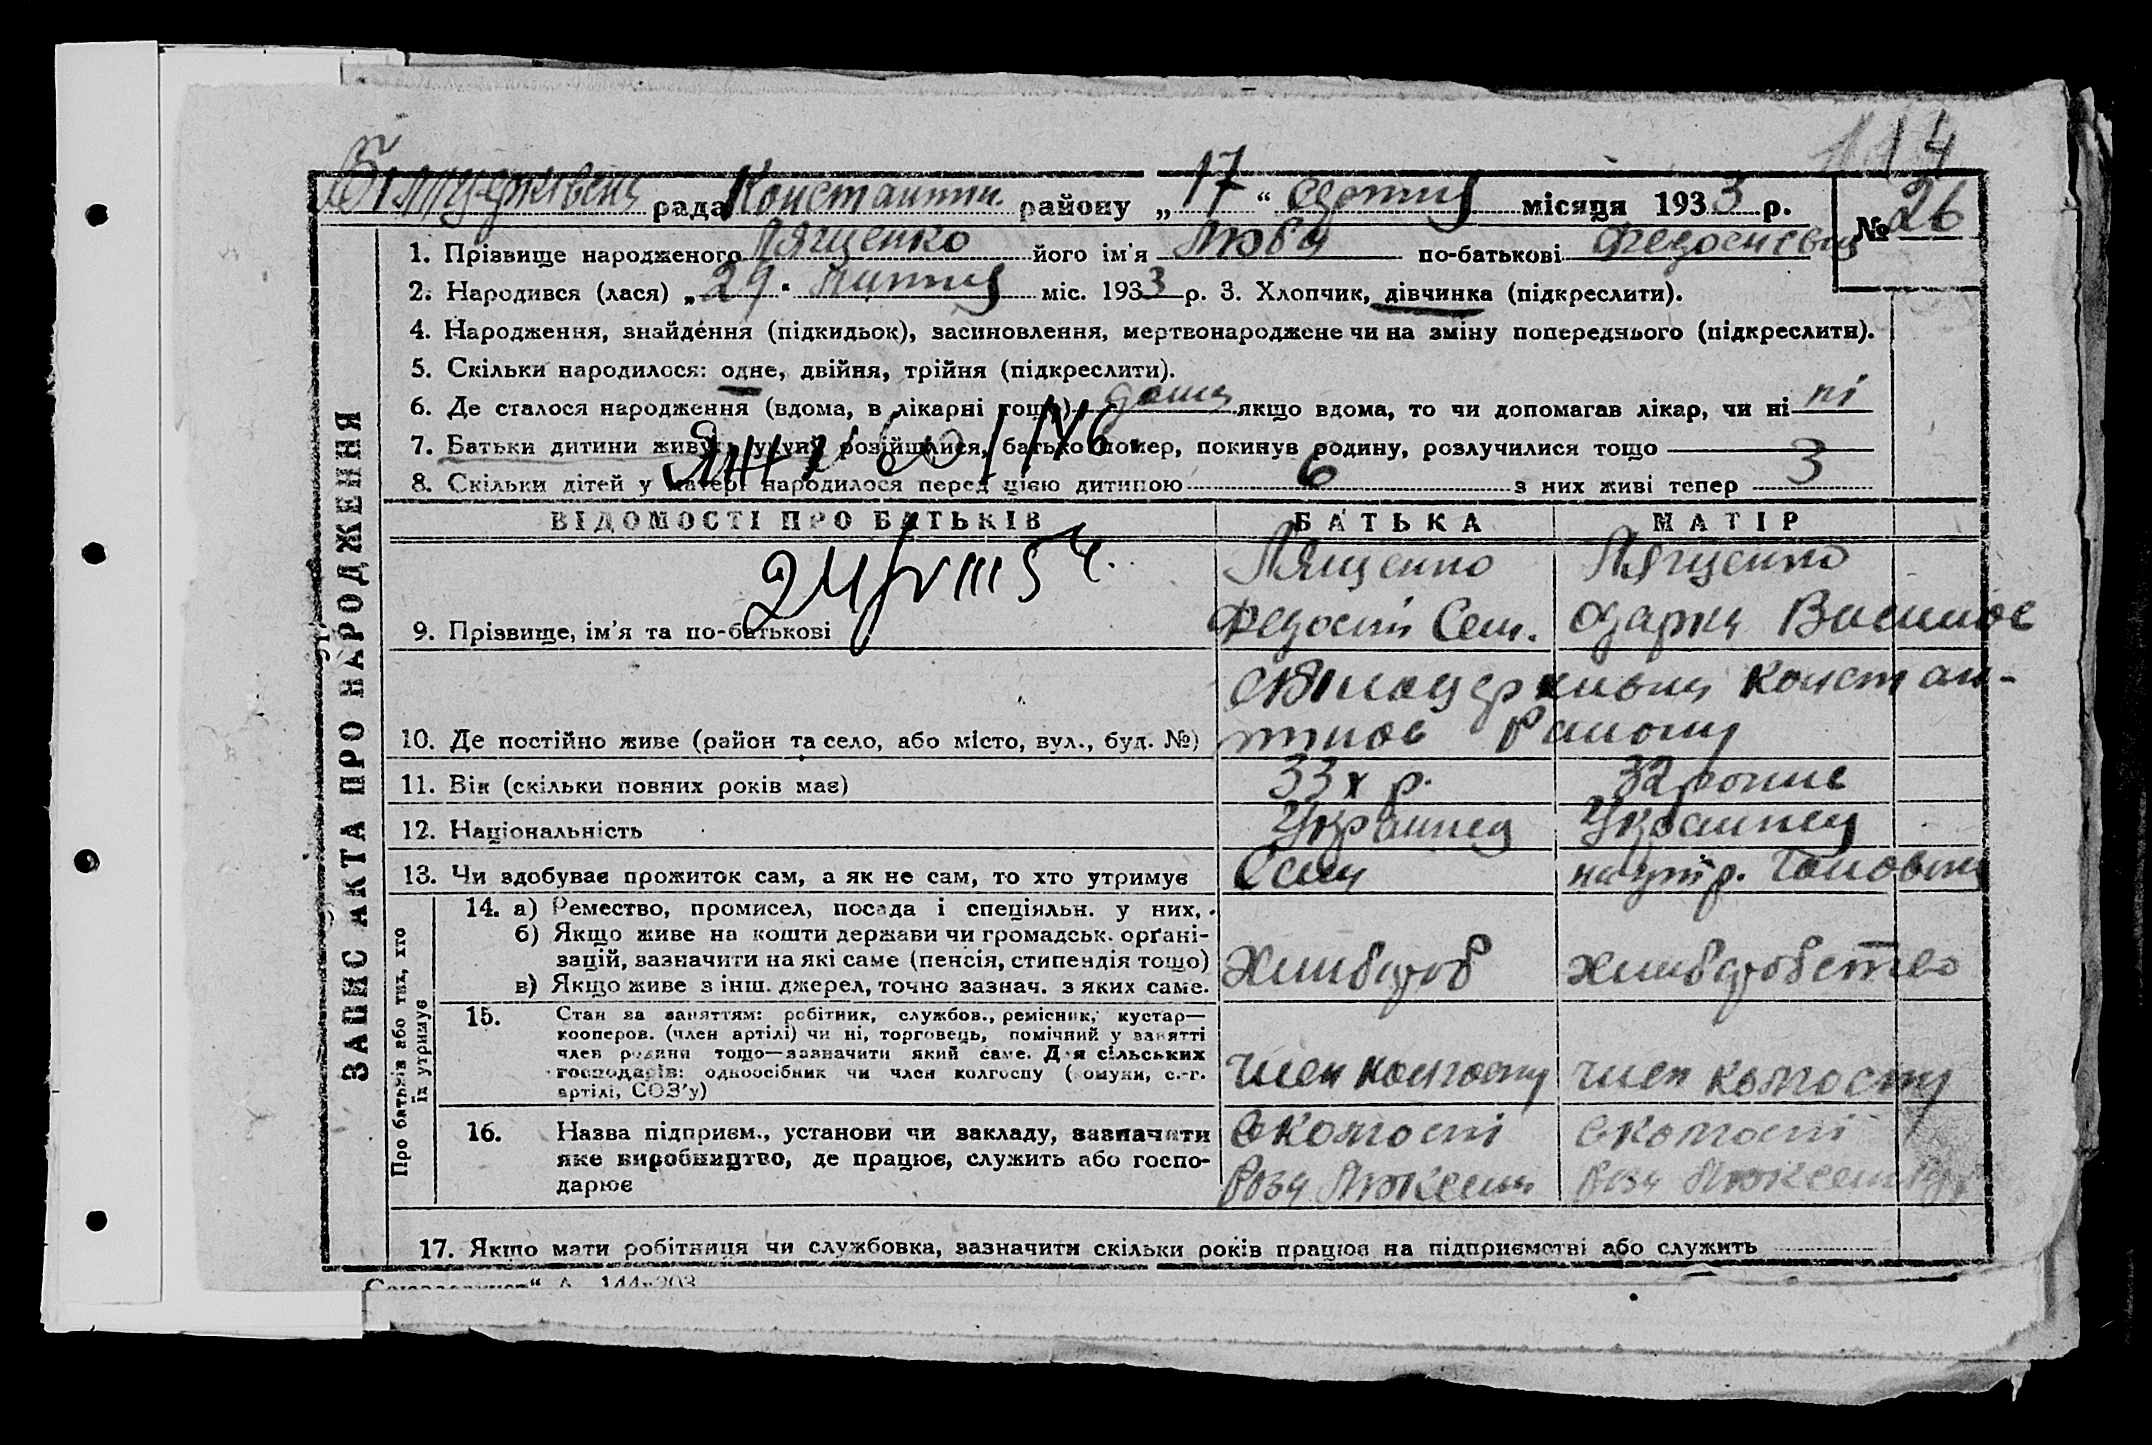 114
Білоцерківська рада Константин. району „ 17 “ серпня місяця 1933 р.
№ 26
1. Прізвище народженого Лященко його ім'я Люба по-батькові Федосиєвна
2. Народився (лася) „ 29 “ липня міс. 1933 р. 3. Хлопчик, дівчинка (підкреслити).
4. Народження, знайдення (підкидьок), засиновлення, мертвонароджене чи на зміну попереднього (підкреслити).
5. Скільки народилося: одне, двійня, трійня (підкреслити).
6. Де сталося народження (вдома, в лікарні тощо) дома якщо вдома, то чи допомагав лікар, чи ні ні
7. Батьки дитини живуть укупі, розійшлися, батько помер, покинув родину, розлучилися тощо
8. Скільки дітей у матері народилося перед цією дитиною 6 з них живі тепер 3
ЗАПИС АКТА ПРО НАРОДЖЕННЯ
ВІДОМОСТІ ПРО БАТЬКІВ БАТЬКА МАТІР
Лященко Лященко
9. Прізвище, ім'я та по-батькові Федосій Сем. Одарка Василів
с Білоцерківка Констан-
10. Де постійно живе (район та село, або місто, вул., буд. №) тинов району
11. Вік (скільки повних років має) 33х р. 32 років
12. Національність Українец Українец
13. Чи здобуває прожиток сам, а як не сам, то хто утримує Сам на утр. чоловіка
Про батьків або тих, хто їх утримує
14. а) Ремество, промисел, посада і спеціяльн. у них,
б) Якщо живе на кошти держави чи громадськ. орґані-
зацій, зазначити на які саме (пенсія, стипендія тощо) хлибороб хлиборобство
в) Якщо живе з інш. джерел, точно зазнач. з яких саме.
15. Стан за заняттям: робітник, службов., ремісник, кустар—
кооперов. (член артілі) чи ні, торговець, помічний у занятті
член родини тощо—зазначити який саме. Для сільських
господарів: одноосібник чи член колгоспу (комуни, с.-г. член колгоспу член колгоспу
артілі, СОЗ'у)
16. Назва підприєм., установи чи закладу, зазначити в колгоспі в колгоспі
яке виробництво, де працює, служить або госпо-
дарює Роза Люксем Роза Люксембур
17. Якщо мати робітниця чи службовка, зазначити скільки років працює на підприємстві або служить